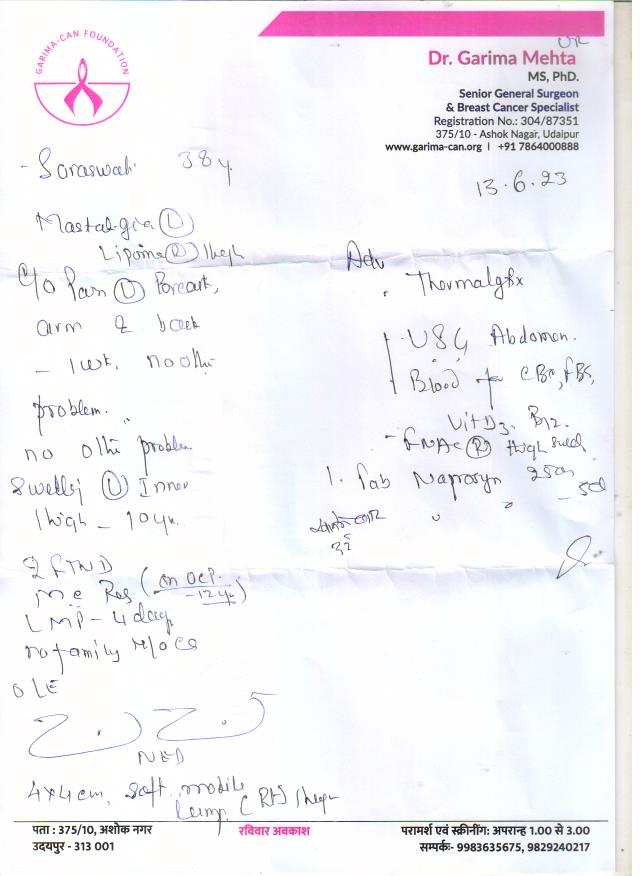 GARIMA-CAN FOUNDATION
UR
Dr. Garima Mehta
MS, PhD.
Senior General Surgeon
& Breast Cancer Specialist
Registration No.: 304/87351
375/10 - Ashok Nagar, Udaipur
www.garima-can.org | +91 7864000888
13.6.23
- Saraswati 38 y.
Mastalgia (L)
Lipoma (R) thigh
C/o Pain (L) Breast,
arm & back
- 1 wk. no othr
problem.
no othr problem
Swellig (L) Inner
thigh - 10 yr.
2 FTND
Mc Reg (on OCP.
- 12 yr)
LMP - 4 days
no family H/o Ca
OLE
NED
4x4 cm, soft mobile
lump (Rt) thigh
Adv
USG Abdomen.
Blood for CBC, FBS,
Vit D3. B12.
- FNAC (R) thigh swell
1. Tab Naprosyn 250
- 5d
पता : 375/10, अशोक नगर
उदयपुर - 313 001
रविवार अवकाश
परामर्श एवं स्क्रीनिंग: अपरान्ह 1.00 से 3.00
सम्पर्क:- 9983635675, 9829240217